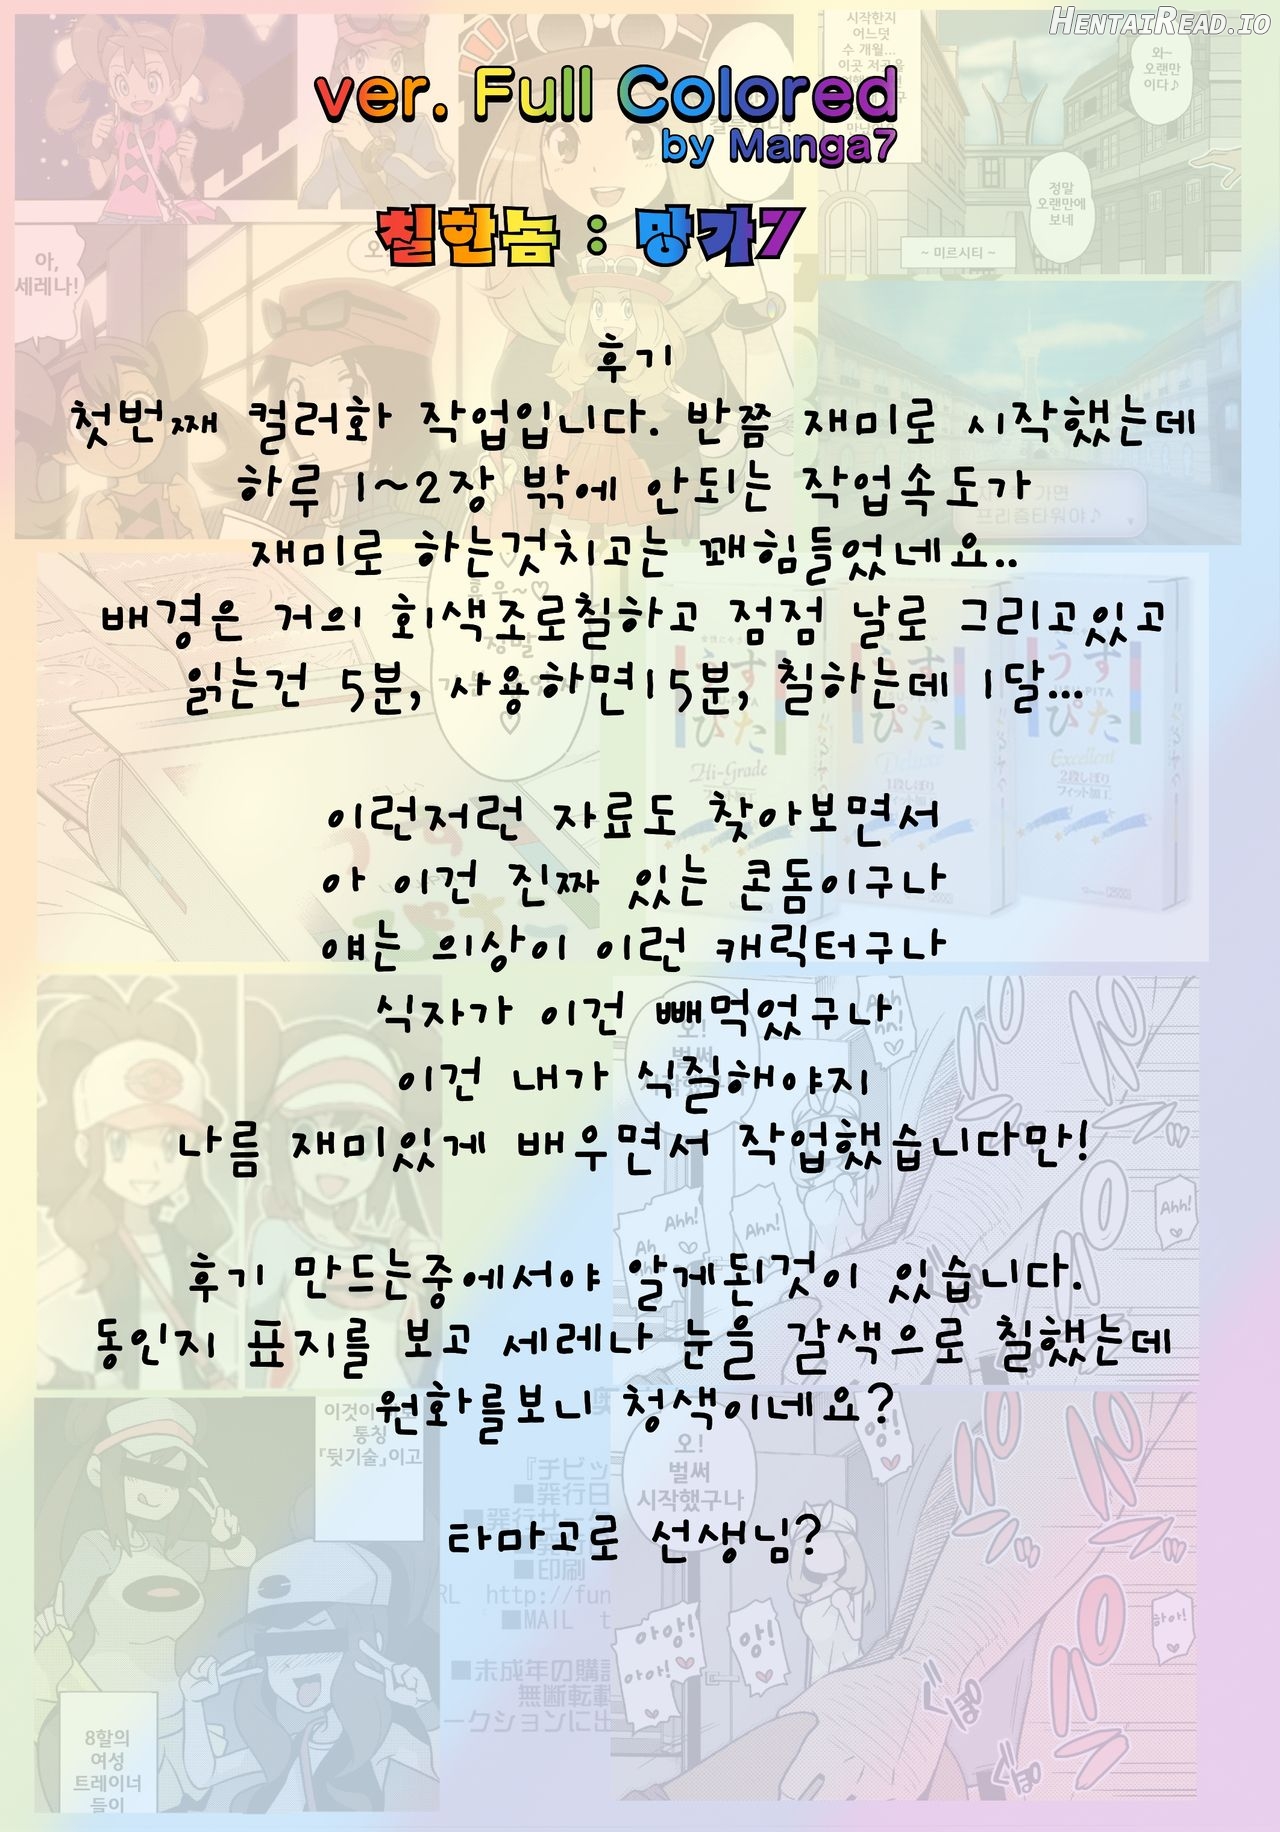 HentaiRead.io
ver. Full Colored
by Manga7
칠한놈 : 망가7
후기
첫번째 컬러화 작업입니다. 반쯤 재미로 시작했는데
하루 1~2장 밖에 안되는 작업속도가
재미로 하는것치고는 꽤힘들었네요..
배경은 거의 회색조로칠하고 점점 날로 그리고있고
읽는건 5분, 사용하면15분, 칠하는데 1달...
이런저런 자료도 찾아보면서
아 이건 진짜 있는 콘돔이구나
얘는 의상이 이런 캐릭터구나
식자가 이건 빼먹었구나
이건 내가 식질해야지
나름 재미있게 배우면서 작업했습니다만!
후기 만드는중에서야 알게된것이 있습니다.
동인지 표지를 보고 세레나 눈을 갈색으로 칠했는데
원화를보니 청색이네요?
타마고로 선생님?
시작한지
어느덧
수 개월...
이곳 저곳을
와~
오랜만
이다♪
정말
오랜만에
보네
~ 미르시티 ~
아,
세레나!
프리즘타워야♪
うす
ぴた
Hi-Grade
うす
ぴた
Deluxe
うす
ぴた
Excellent
2段しぼり
フィット加工
Ahh!
Ahh!
Ahn!
Ahh!
통칭
『뒷기술』이고
오!
벌써
시작했구나
앙!
아앙!
아아!
앙!
하아!
■発行日
■印刷
URL http://fun
■MAIL
■未成年の購読
無断転載
ークションに出
8할의
여성
트레이너
들이